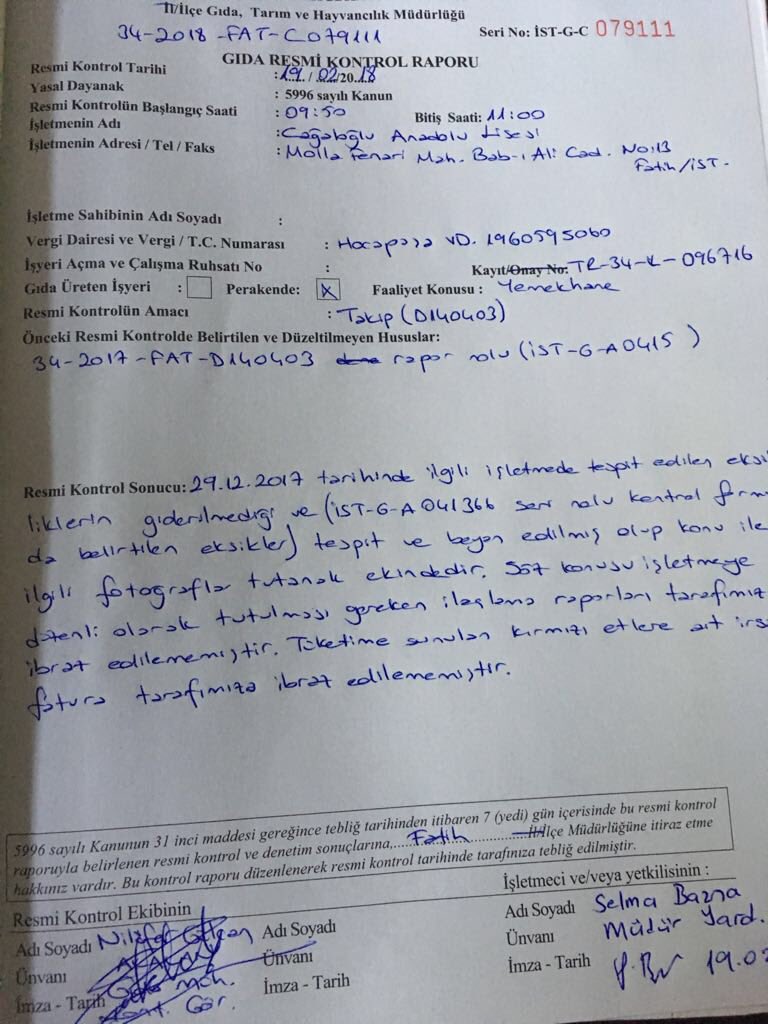 İl/İlçe Gıda, Tarım ve Hayvancılık Müdürlüğü
34-2018-FAT-C079111
Seri No: İST-G-C 079111
GIDA RESMİ KONTROL RAPORU
Resmi Kontrol Tarihi : 19 / 02/2018
Yasal Dayanak : 5996 sayılı Kanun
Resmi Kontrolün Başlangıç Saati : 09:50 Bitiş Saati: 11:00
İşletmenin Adı : Cağaloğlu Anadolu Lisesi
İşletmenin Adresi / Tel / Faks : Molla Fenari Mah. Bab-ı Ali Cad. No:13
Fatih/İST-
İşletme Sahibinin Adı Soyadı :
Vergi Dairesi ve Vergi / T.C. Numarası : Hocapaşa VD. 1960595060
İşyeri Açma ve Çalışma Ruhsatı No : Kayıt/Onay No: TR-34-K-096716
Gıda Üreten İşyeri : Perakende: X Faaliyet Konusu : Yemekhane
Resmi Kontrolün Amacı : Takip (D140403)
Önceki Resmi Kontrolde Belirtilen ve Düzeltilmeyen Hususlar:
34-2017-FAT-D140403 rapor nolu (İST-G-A0415 )
Resmi Kontrol Sonucu: 29.12.2017 tarihinde ilgili işletmede tespit edilen eksi
liklerin giderilmediği ve (İST-G-A 041366 seri nolu kontrol form
da belirtilen eksikler) tespit ve beyan edilmiş olup konu ile
ilgili fotoğraflar tutanak ekindedir. Söz konusu işletmeye
düzenli olarak tutulması gereken ilaçlama raporları tarafımız
ibraz edilememiştir. Tüketime sunulan kırmızı etlere ait irs
fatura tarafımıza ibraz edilememiştir.
5996 sayılı Kanunun 31 inci maddesi gereğince tebliğ tarihinden itibaren 7 (yedi) gün içerisinde bu resmi kontrol
raporuyla belirlenen resmi kontrol ve denetim sonuçlarına, Fatih İl/İlçe Müdürlüğüne itiraz etme
hakkınız vardır. Bu kontrol raporu düzenlenerek resmi kontrol tarihinde tarafınıza tebliğ edilmiştir.
Resmi Kontrol Ekibinin
İşletmeci ve/veya yetkilisinin :
Adı Soyadı Adı Soyadı Adı Soyadı Selma Bazna
Ünvanı Ünvanı Ünvanı Müdür Yard.
İmza - Tarih İmza - Tarih İmza - Tarih 19.0
Kont. Gör.